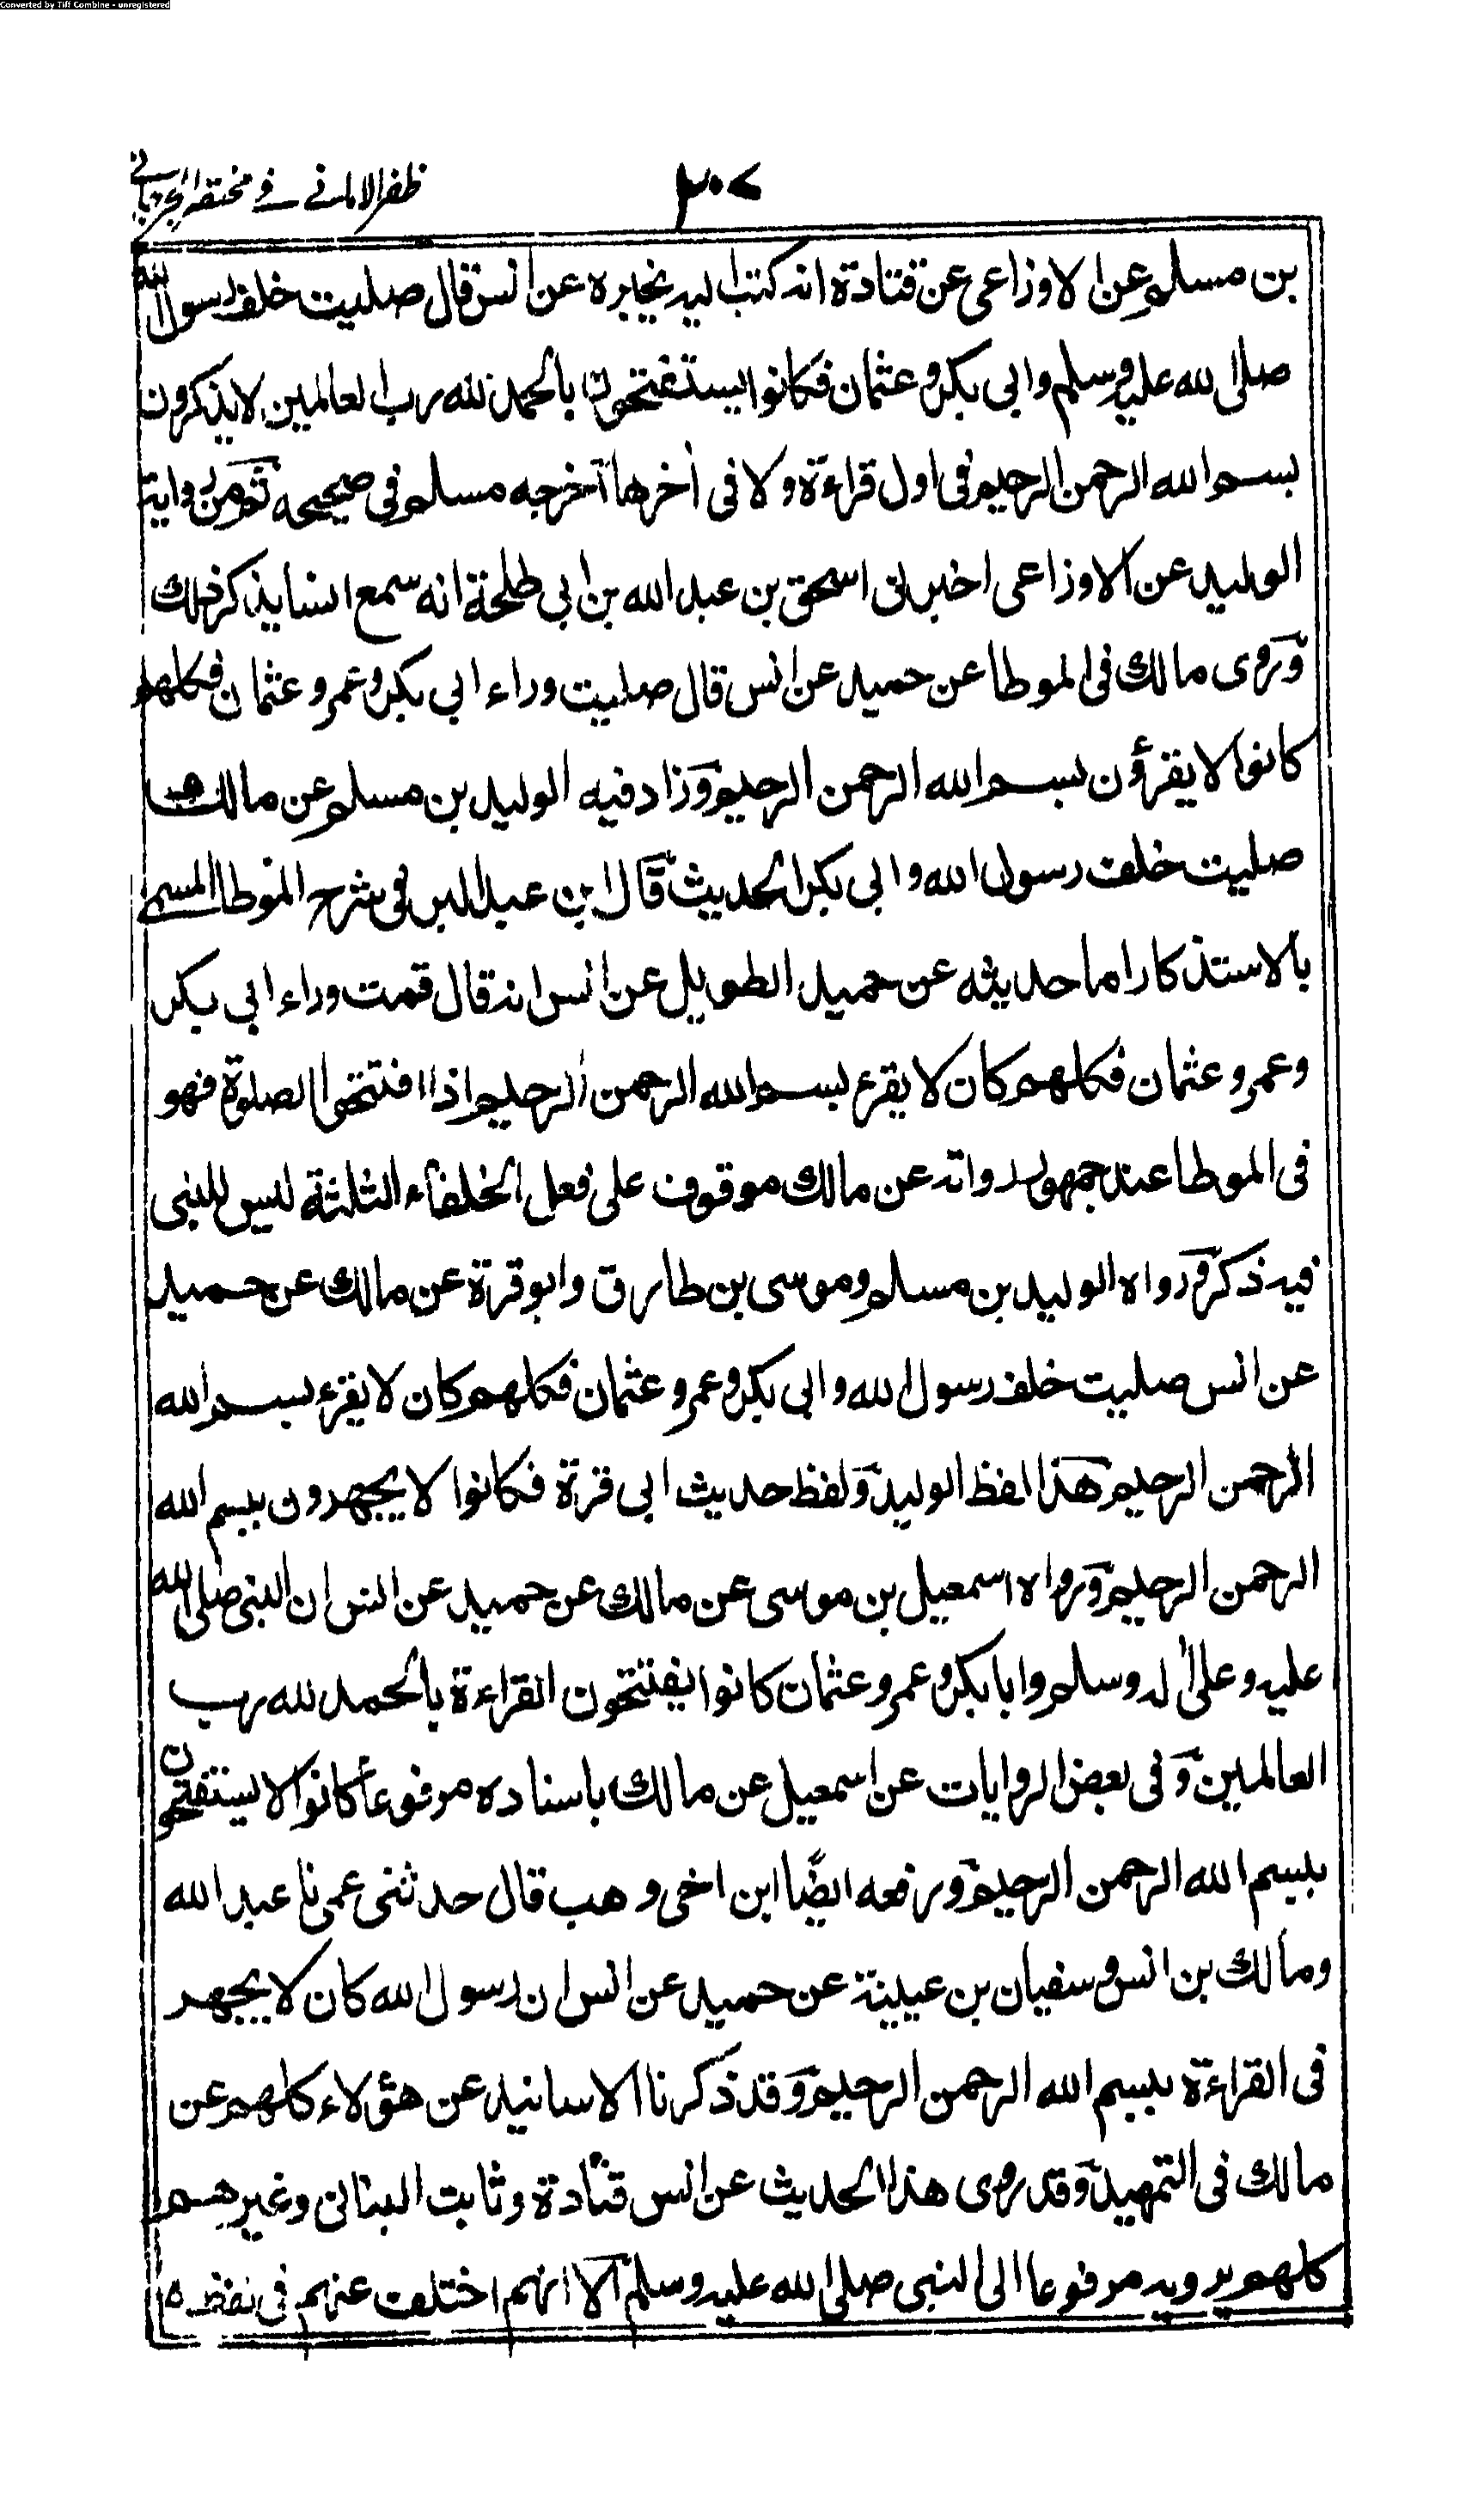 Converted by Tiff Combine - unregistered
ظفر الامانے فے مختصر الجرجانے
٢٠٧
بن مسلم عن الاوزاعی عن قتادة انه كتب اليه يخبره عن انس قال صليت خلف رسول الله
صلی الله عليه وسلم وابی بكر و عثمان فكانوا يستفتحون بالحمد لله رب العالمين لا يذكرون
بسم الله الرحمن الرحيم فی اول قراءة ولا فی أخرها أخرجه مسلم فی صحيحه ثم من رواية
الوليد عن الاوزاعی اخبرنی اسحق بن عبد الله بن ابی طلحة انه سمع انسا يذكر ذلك
وروی مالك فی الموطا عن حميد عن انس قال صليت وراء ابی بكر وعمر وعثمان فكلهم
كانوا لا يقرؤن بسم الله الرحمن الرحيم وزاد فيه الوليد بن مسلم عن مالك
صليت خلف رسول الله وابی بكر الحديث قال ابن عبد البر فی شرح الموطا المسمی
بالاستذكار اما حديثه عن حميد الطويل عن انس انه قال قمت وراء ابی بكر
وعمر وعثمان فكلهم كان لا يقرء بسم الله الرحمن الرحيم اذا افتتحوا الصلوة فهو
فی الموطا عند جمهور رواته عن مالك موقوف علی فعل الخلفاء الثلثة ليس للنبی
فيه ذكر ورواه الوليد بن مسلم وموسی بن طارق وابو قرة عن مالك عن حميد
عن انس صليت خلف رسول الله وابی بكر وعمر وعثمان فكلهم كان لا يقرء بسم الله
الرحمن الرحيم هذا لفظ الوليد ولفظ حديث ابی قرة فكانوا لا يجهرون ببسم الله
الرحمن الرحيم ورواه اسمعيل بن موسی عن مالك عن حميد عن انس ان النبی صلی الله
عليه وعلی أله وسلم وابا بكر وعمر وعثمان كانوا يفتتحون القراءة بالحمد لله رب
العالمين وفی بعض الروايات عن اسمعيل عن مالك باسناده مرفوعا كانوا لا يستفتحون
ببسم الله الرحمن الرحيم ورفعه ايضًا ابن اخی وهب قال حدثنی عمی نا عبد الله
ومالك بن انس وسفيان بن عيينة عن حميد عن انس ان رسول الله كان لا يجهر
فی القراءة ببسم الله الرحمن الرحيم وقد ذكرنا الاسانيد عن هؤلاء كلهم عن
مالك فی التمهيد وقد روی هذا الحديث عن انس قتادة وثابت البنانی وغيرهم
كلهم يرويه مرفوعا الی النبی صلی الله عليه وسلم الا انهم اختلف عنهم فی